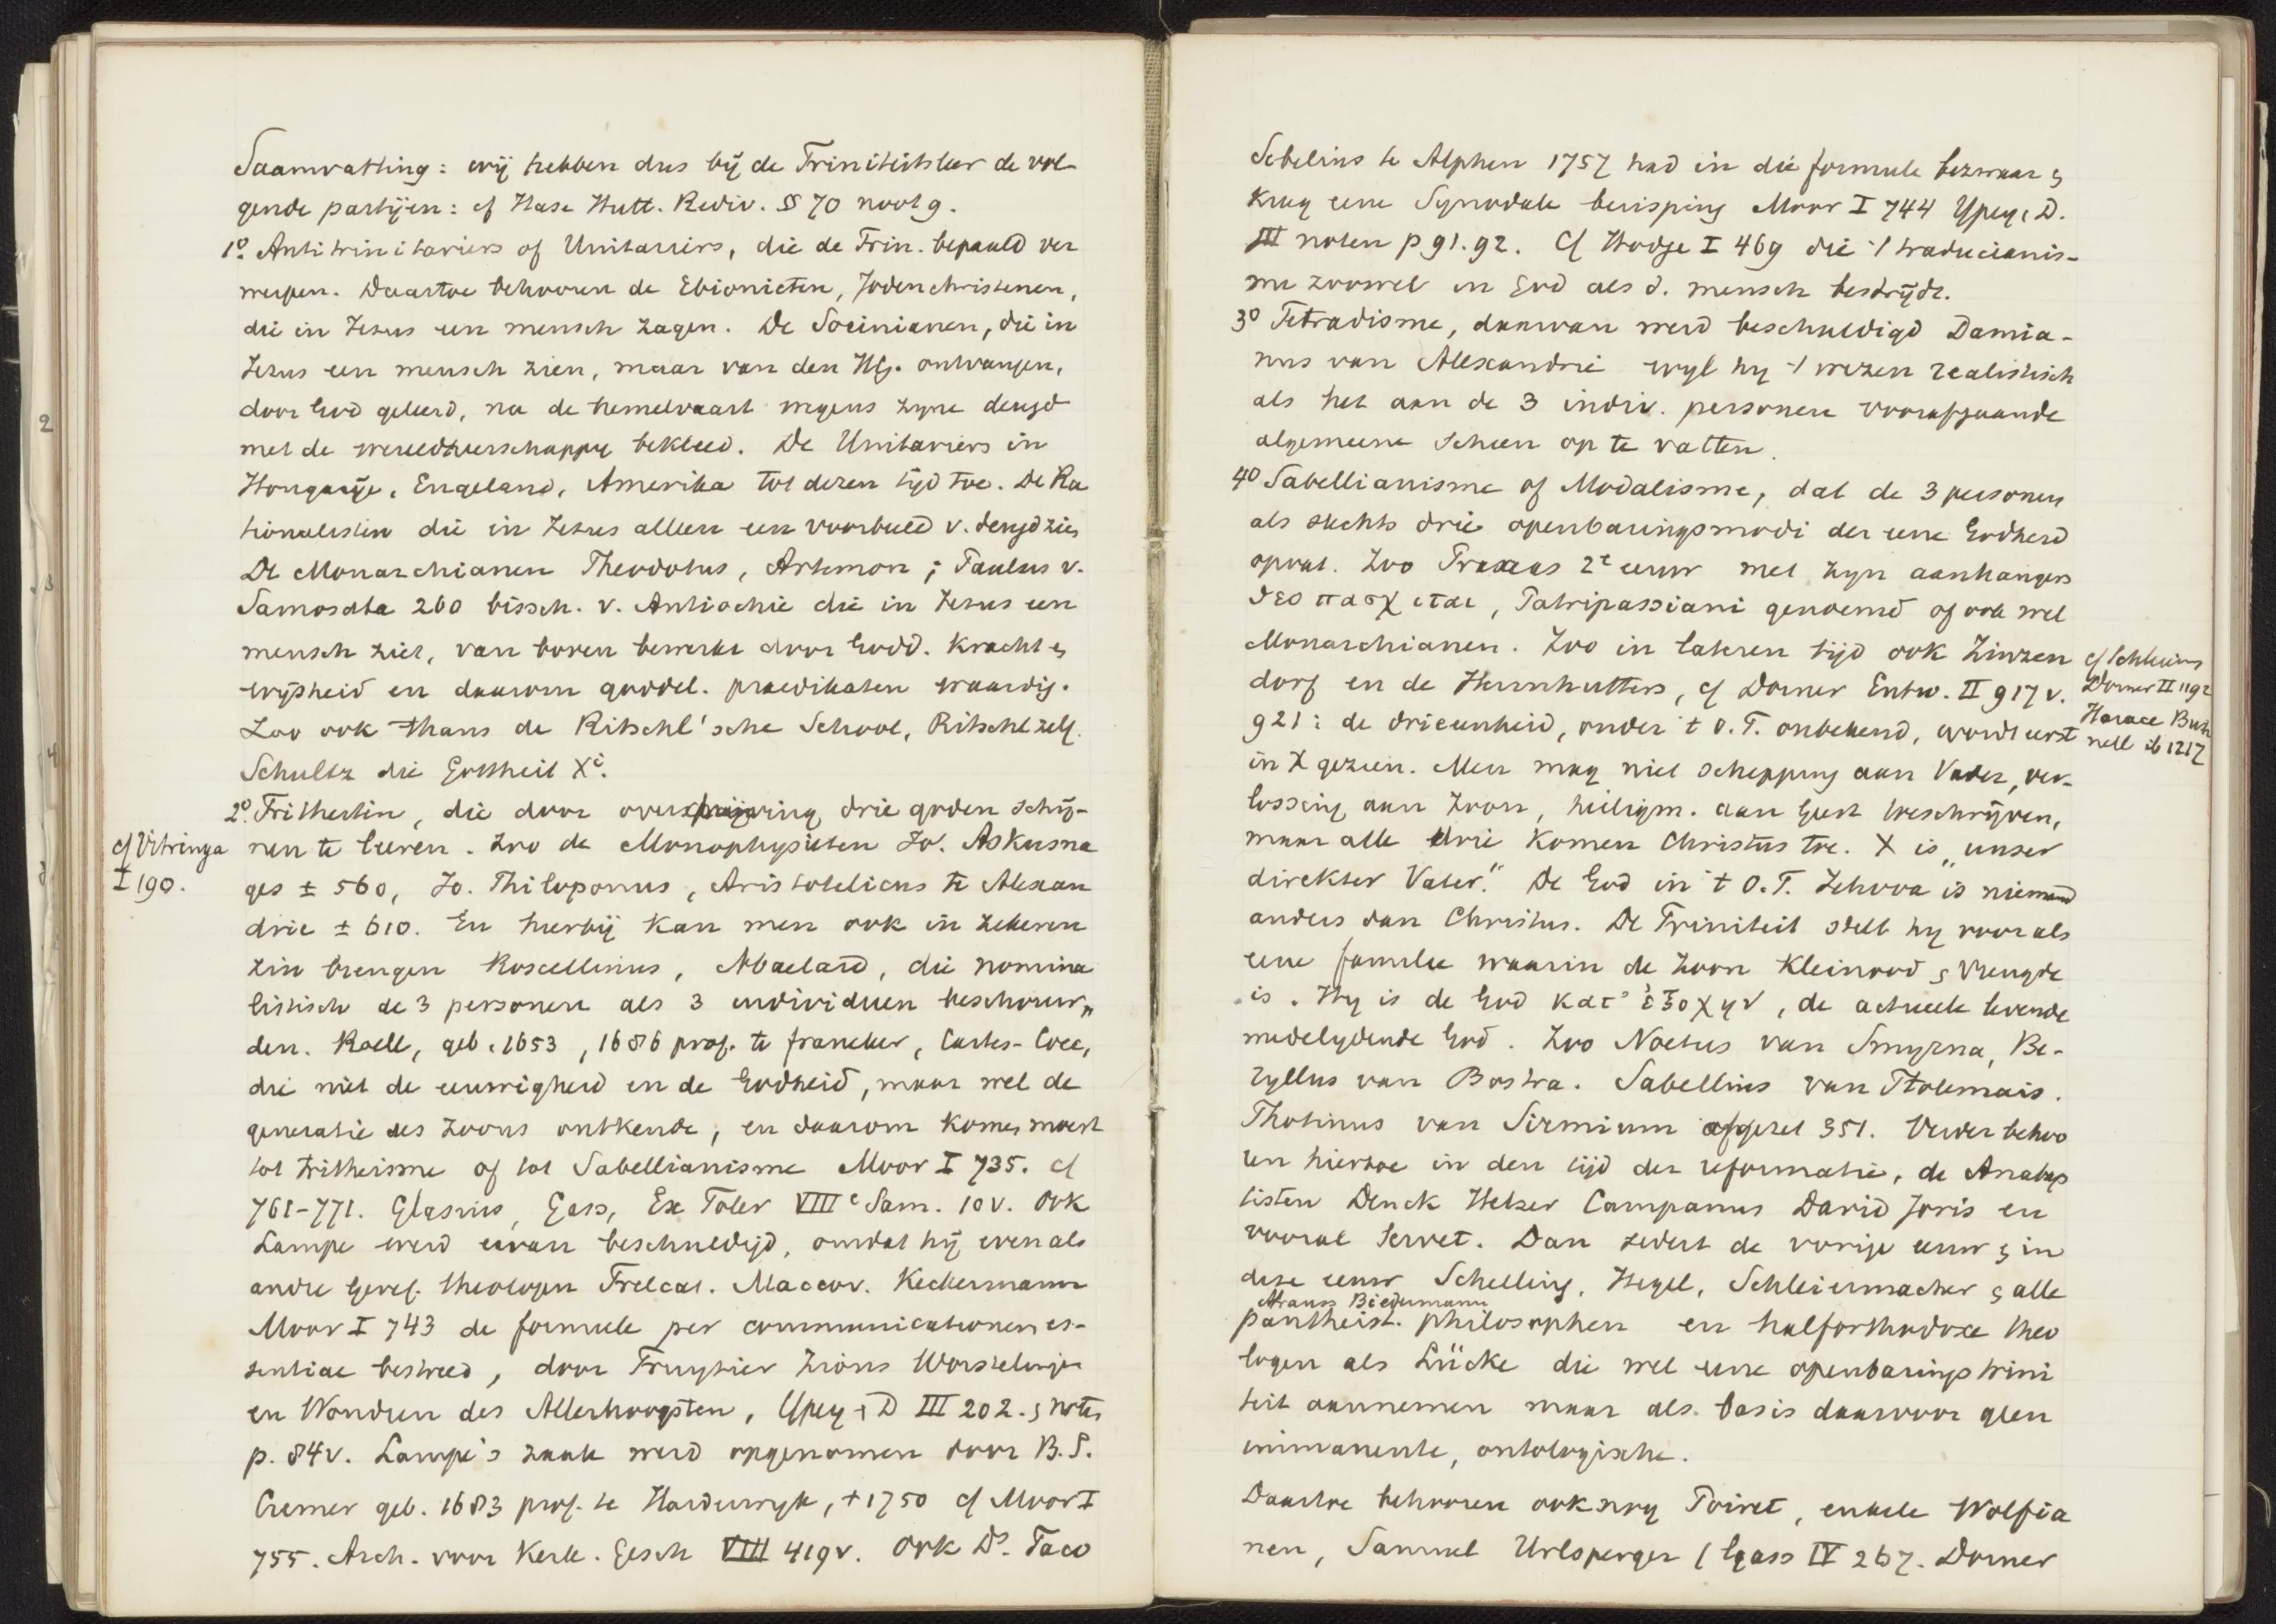 Saamvatting: wij hebben dus bij de Triniteitsleer de vol-
gende partijen: cf Hase Hutt. Rediv. §§ 70 noot 9.
1º. Antitrinitariers of Unitariers, die de Trin. bepaald ver
werpen. Daartoe behooren de Ebionieten, Jodenchristenen,
die in Jezus een mensch zagen. De Socinianen, die in
Jezus een mensch zien, maar van den HG. ontvangen,
door God geleerd, na de hemelvaart wegens zyne deugd
met de wereldheerschappy bekleed. De Unitariers in
Hongarije, Engeland, Amerika tot dezen tijd toe. De Ra
tionalisten die in Jezus alleen een voorbeeld v. deugd zien
De Monarchianen Theodotus, Artemon; Paulus v.
Samosata 260 bissch. v. Antiochie die in Jezus een
mensch ziet, van boven bewerkt door Godd. kracht en
wijsheid en daarom goddel. praedikaten waardig.
Zoo ook thans de Ritschl'sche School, Ritschl zelf.
Schultz die Gottheit Xi.
2º. Tritheisten, die door overdrijving drie goden schij-
cf Vitringa
I 190.
nen te leeren. Zoo de Monophysieten Jo. Askusna
ges ± 560, Jo. Philoponus, Aristotelicus te Alexan
drie ± 610. En hierbij kan men ook in zekeren
zin brengen Roscellinus, Abaelard, die nomina
listisch de 3 personen als 3 individuen beschouw„
den. Roell, geb. 1653, 1686 prof. te franeker, Cartes-Cocc,
die niet de eeuwigheid en de Godheid, maar wel de
generatie des Zoons ontkende, en daarom komen moest
tot tritheisme of tot Sabellianisme Moor I 735. cf
761-771. Glasius, Gass, Ex Toler VIIIe Sam. 10v. Ook
Lampe werd ervan beschuldigd, omdat hij evenals
andre Geref. theologen Trelcat. Maccov. Keckermann
Moor I 743 de formule per communicationem es-
sentiae bestreed, door Fruytier Zions Worstelingen
en Wondren des Allerhoogsten, Ypey & D III 202. en noten
p. 84v. Lampe's zaak werd opgenomen door B.S.
Cremer geb. 1683 prof. te Harderwyk, † 1750 cf Moor I
755. Arch. voor Kerk. Gesch VIII 419v. Ook Ds. Taco
Sibelius te Alphen 1757 had in die formule bezwaar en
kreeg eene Synodale berisping Moor I 744 Ypey & D.
III noten p 91.92. Cf Hodge I 469 die 't traducianis-
me zoowel in God als d. mensch bestrijdt.
3º Tetradisme, daarvan werd beschuldigd Damia-
nus van Alexandrie wyl hy 't wezen realistisch
als het aan de 3 indiv. personen voorafgaande
algemeene scheen op te vatten.
4º Sabellianisme of Modalisme, dat de 3 personen
als slechts drie openbaringsmodi der eene Godheid
opvat. Zoo Praxeas 2e eeuw met zyn aanhangers
θεοπασχιται, Patripassiani genoemd of ook wel
Monarchianen. Zoo in lateren tijd ook Zinzen
dorf en de Hernhutters, cf Dorner Entw. II 917 v.
921: de drieenheid, onder 't O.T. onbekend, wordt eerst
cf Schleierm
Dorner II 1192
Horace Bush
nell ib 1217
in X gezien. Men mag niet schepping aan Vader, ver-
lossing aan Zoon, heiligm. aan Geest toeschrijven,
maar alle drie komen Christus toe. X is „unser
direkter Vater." De God in 't O.T. Jehova is niemand
anders dan Christus. De Triniteit stelt hy voor als
eene familie waarin de Zoon kleinood en vreugde
is. Hy is de God κατ' ἐξοχην, de actueele levende
medelydende God. Zoo Noetus van Smyrna, Be-
ryllus van Bostra. Sabellius van Ptolemais.
Photinus van Sirmium afgezet 351. Verder behoo
ren hiertoe in den tijd der reformatie, de Anabap
tisten Denck Hetzer Campanus David Joris en
vooral Servet. Dan sedert de vorige eeuw en in
deze eeuw Schelling, Hegel, Schleiermacher en alle
Strauss Biedermann
pantheist. philosophen en halforthodoxe theo
logen als Lücke die wel eene openbaringstrini
teit aannemen maar als basis daarvoor geen
immanente, ontologische.
Daartoe behooren ook nog Poiret, enkele Wolfia
nen, Samuel Urlsperger (Gass IV 267. Dorner